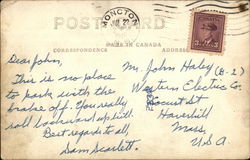 POST CARD
MONCTON
MADE IN CANADA
CORRESPONDENCE
ADDRESS
Dear John,
This is no place
to park with the
brake off. You really
roll backward up hill.
Best regards to all,
Sam Scarlett.
Mr. John Haley (B-2)
Western Electric Co.
Locust St
Haverhill
Mass,
U.S.A